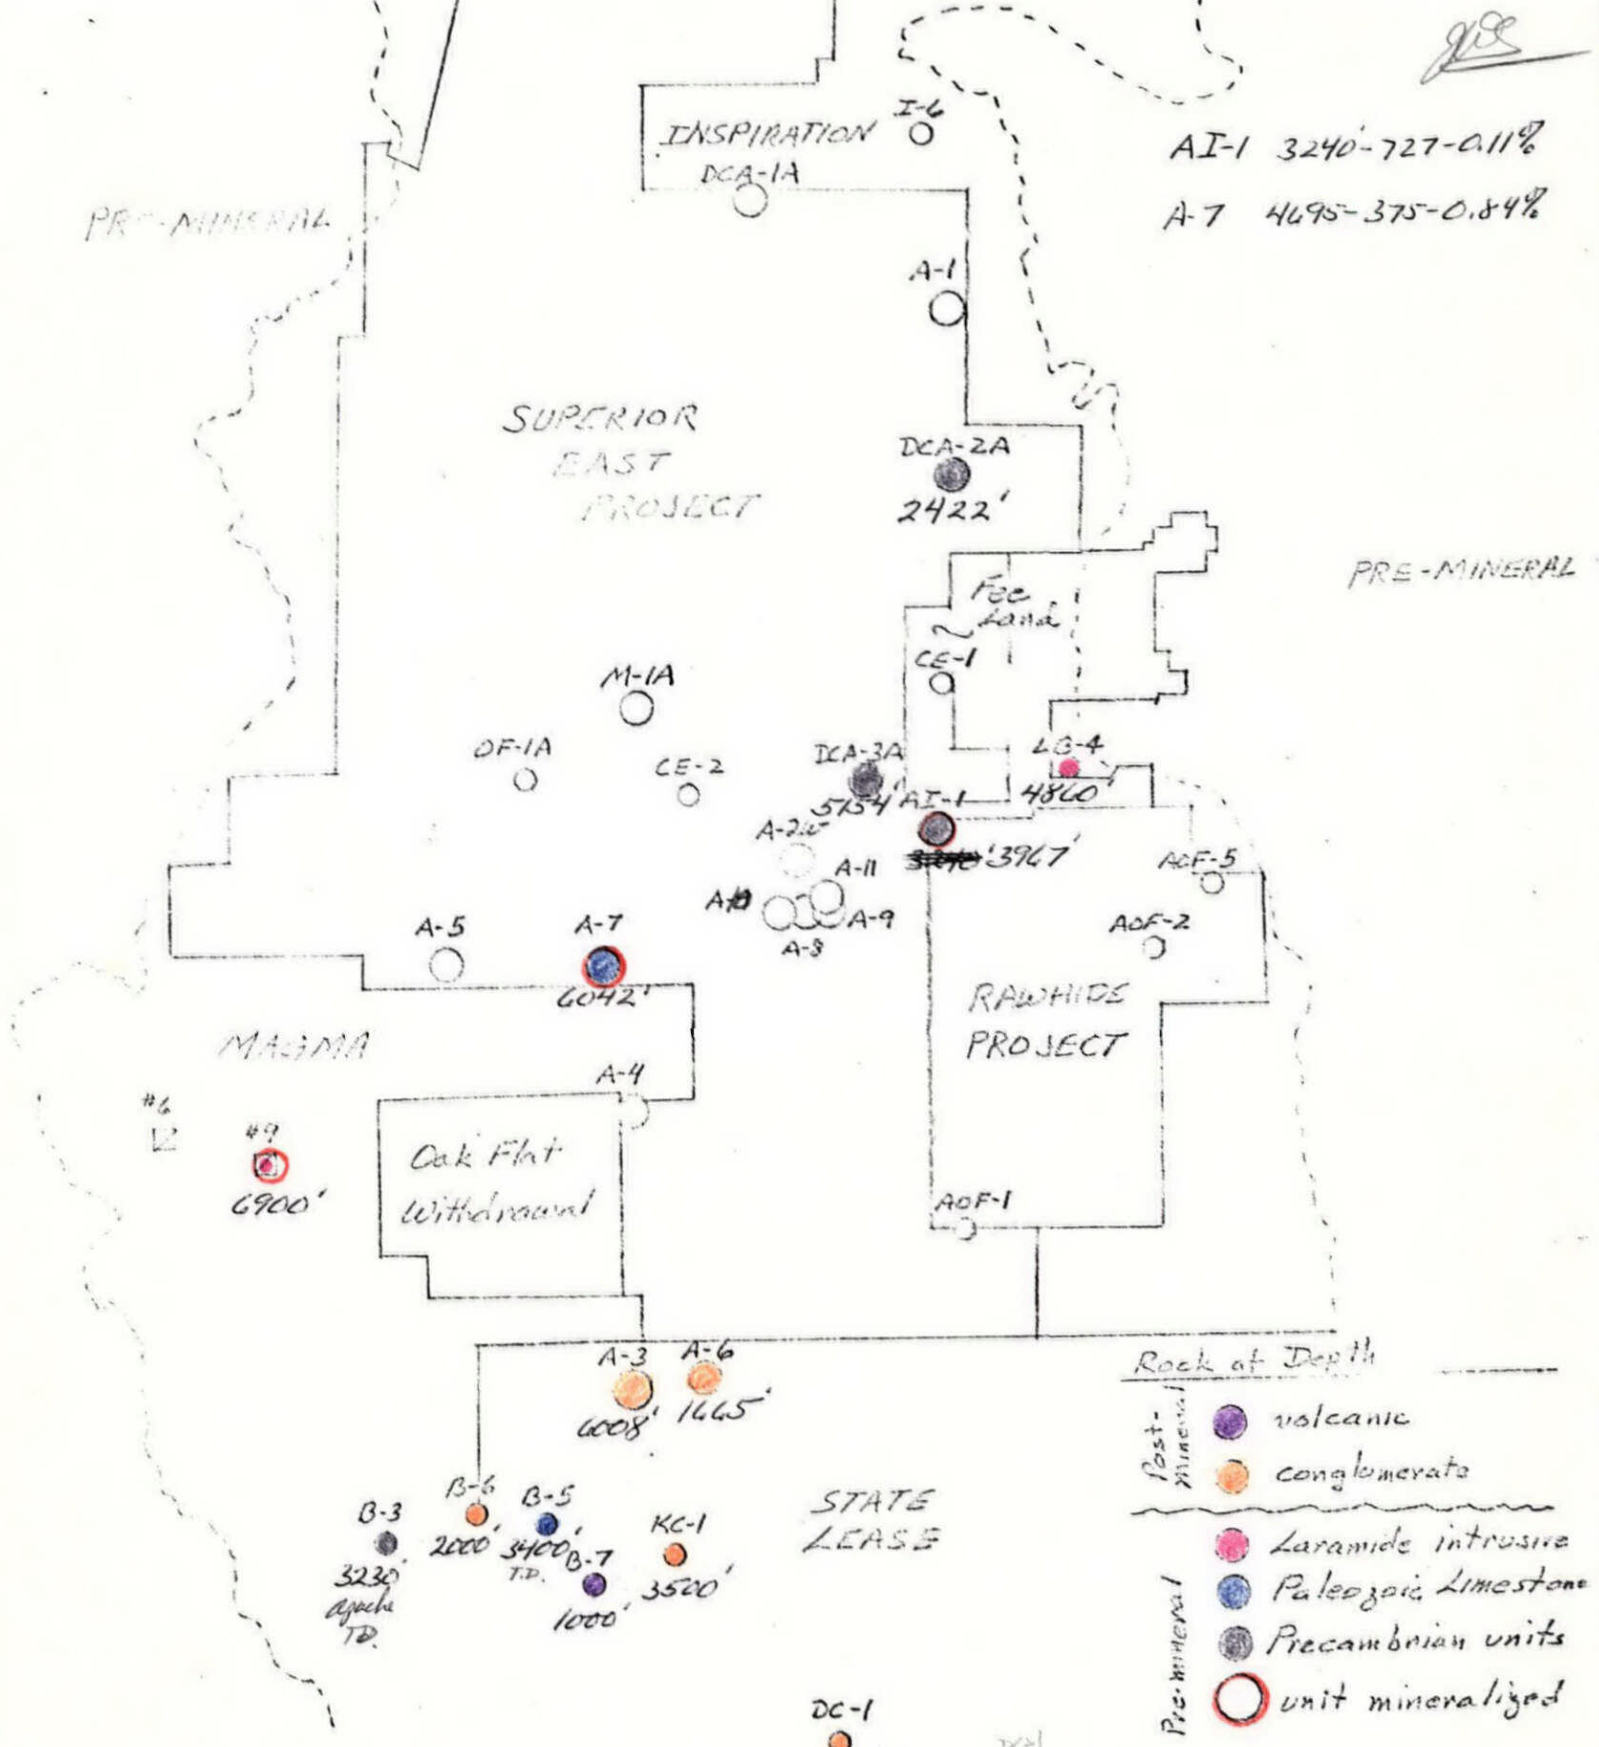 I-6
INSPIRATION
DCA-1A
AI-1 3240'-727-0.11%
A-7 4695-375-0.84%
PRE-MINERAL
A-1
SUPERIOR
EAST
PROJECT
DCA-2A
2422'
PRE-MINERAL
Fee
Land
CE-1
M-1A
OF-1A
CE-2
DCA-3A
5154'
AI-1
3967'
LG-4
4860'
A-11
A-9
A-8
AOF-5
AOF-2
A-5
A-7
6042'
RAWHIDE
PROJECT
MAGMA
A-4
#6
#9
6900'
Oak Flat
Withdrawal
AOF-1
A-3
6008'
A-6
1665'
B-6
2000'
B-5
3400'
T.D.
B-3
3230'
Apache
T.D.
B-7
1000'
KC-1
3500'
STATE
LEASE
DC-1
Rock at Depth
Post-
mineral
volcanic
conglomerate
Pre-mineral
Laramide intrusive
Paleozoic Limestone
Precambrian units
unit mineralized